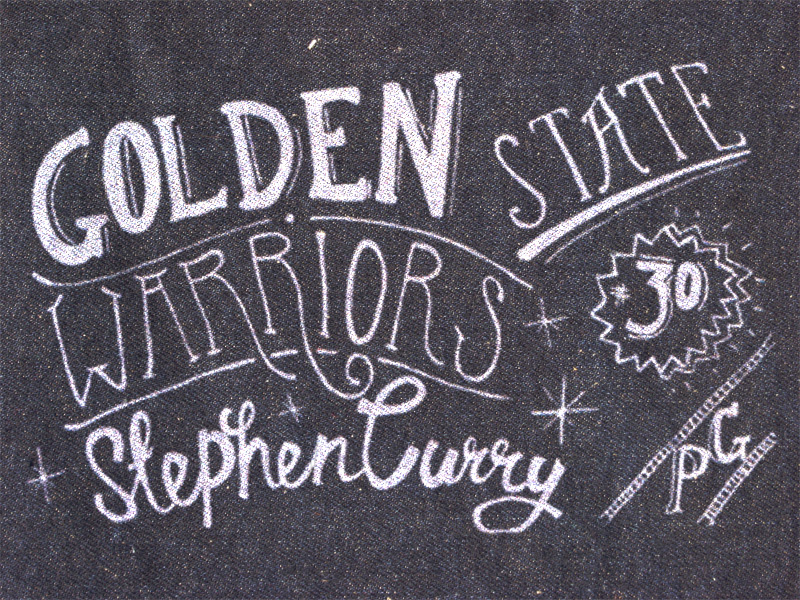 GOLDEN STATE
WARRIORS
30
Stephen Curry
PG